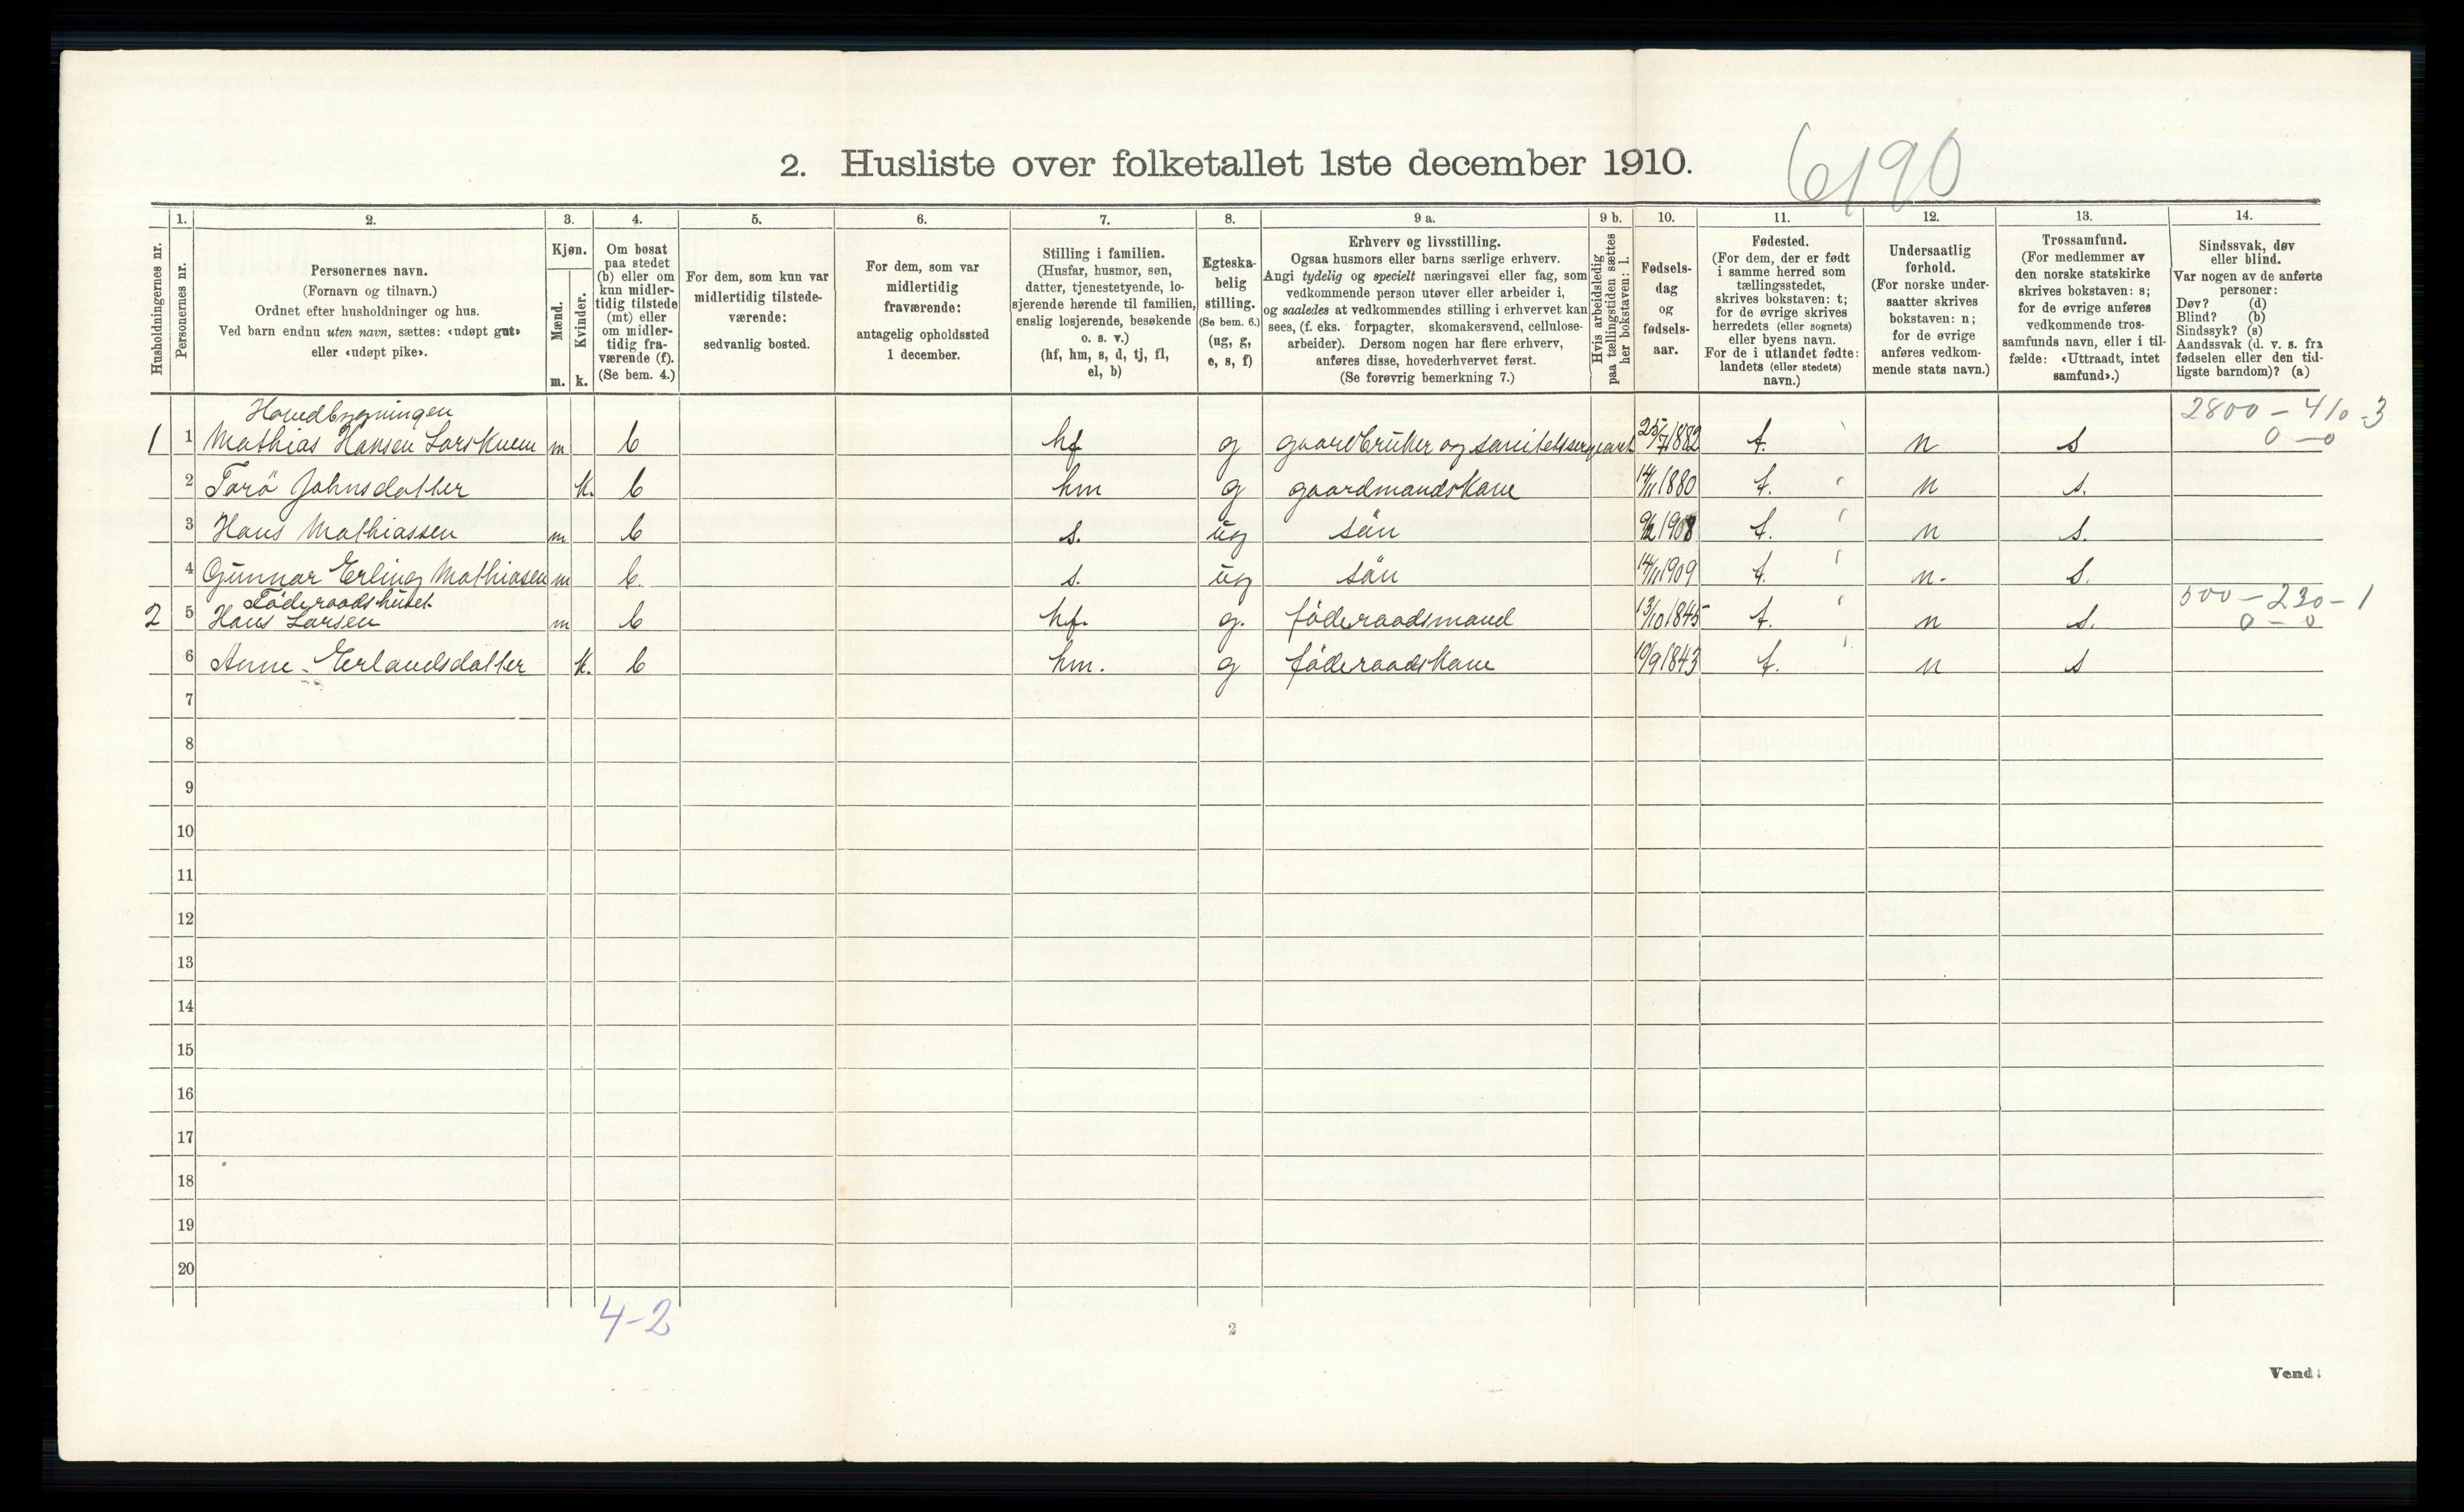 2. Husliste over folketallet 1ste december 1910.
6190
Husholdningernes nr.
1.
Personernes nr.
2.
Personernes navn.
(Fornavn og tilnavn.)
Ordnet efter husholdninger og hus.
Ved barn endnu uten navn, sættes: «udøpt gut»
eller «udøpt pike».
3.
Kjøn.
Mænd.
Kvinder.
m. k.
4.
Om bosat
paa stedet
(b) eller om
kun midler-
tidig tilstede
(mt) eller
om midler-
tidig fra-
værende (f).
(Se bem. 4.)
5.
For dem, som kun var
midlertidig tilstede-
værende:
sedvanlig bosted.
6.
For dem, som var
midlertidig
fraværende:
antagelig opholdssted
1 december.
7.
Stilling i familien.
(Husfar, husmor, søn,
datter, tjenestetyende, lo-
sjerende hørende til familien,
enslig losjerende, besøkende
o. s. v.)
(hf, hm, s, d, tj, fl,
el, b)
8.
Egteska-
belig
stilling.
(Se bem. 6.)
(ug, g,
e, s, f)
9 a.
Erhverv og livsstilling.
Ogsaa husmors eller barns særlige erhverv.
Angi tydelig og specielt næringsvei eller fag, som
vedkommende person utøver eller arbeider i,
og saaledes at vedkommendes stilling i erhvervet kan
sees, (f. eks. forpagter, skomakersvend, cellulose-
arbeider). Dersom nogen har flere erhverv,
anføres disse, hovederhvervet først.
(Se forøvrig bemerkning 7.)
9 b.
Hvis arbeidsledig
paa tællingstiden sættes
her bokstaven: l.
10.
Fødsels-
dag
og
fødsels-
aar.
11.
Fødested.
(For dem, der er født
i samme herred som
tællingsstedet,
skrives bokstaven: t;
for de øvrige skrives
herredets (eller sognets)
eller byens navn.
For de i utlandet fødte:
landets (eller stedets)
navn.)
12.
Undersaatlig
forhold.
(For norske under-
saatter skrives
bokstaven: n;
for de øvrige
anføres vedkom-
mende stats navn.)
13.
Trossamfund.
(For medlemmer av
den norske statskirke
skrives bokstaven: s;
for de øvrige anføres
vedkommende tros-
samfunds navn, eller i til-
fælde: «Uttraadt, intet
samfund».)
14.
Sindssvak, døv
eller blind.
Var nogen av de anførte
personer:
Døv? (d)
Blind? (b)
Sindssyk? (s)
Aandssvak (d. v. s. fra
fødselen eller den tid-
ligste barndom)? (a)
Hovedbygningen
2800 – 410 – 3
1 1 Mathias Hansen Larskuem m b hf g gaardbruker og sanitetssergeant 25/7 1882 t. n s 0 – 0
2 Tarö Johnsdatter k. b hm g gaardmandskone 14/11 1880 t. n s.
3 Hans Mathiassen m b s. ug sön 9/2 1908 t. n s.
4 Gunnar Erling Mathiasen m b. s. ug sön 14/11 1909 t. n. s.
Föderaadshuset
500 – 230 – 1
2 5 Hans Larsen m b hf. g. föderaadsmand 13/10 1845 t. n s. 0 – 0
6 Anne Erlandsdatter k. b hm. g föderaadskone 10/9 1843 t. n s
7
8
9
10
11
12
13
14
15
16
17
18
19
20
4-2
2
Vend!